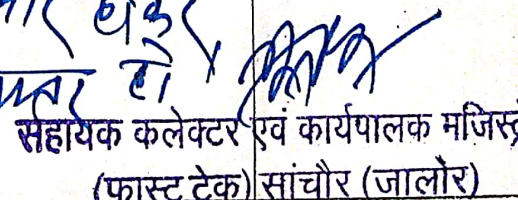 हो
सहायक कलेक्टर एवं कार्यपालक मजिस्ट्
(फास्ट टेक) सांचौर (जालोर)